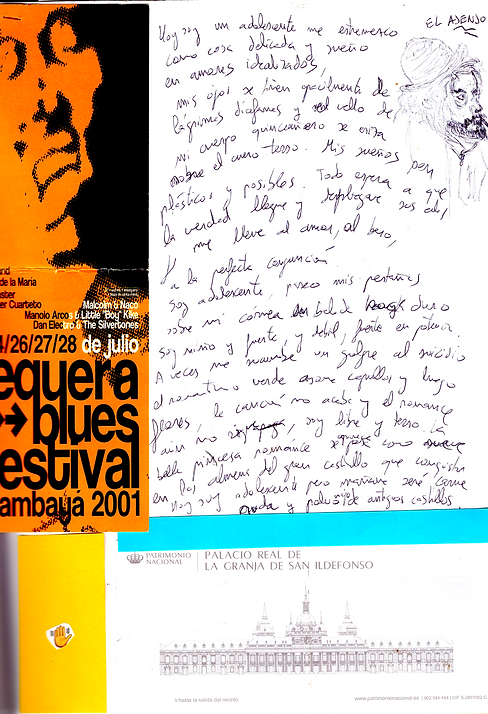 EL AJENJO
Hoy soy un adolescente me estremezco
como cosa delicada y sueño
en amores idealizados,
mis ojos se llenan fácilmente de
lágrimas diáfanas y el vello de
mi cuerpo quinceañero se eriza
sobre el cuero terso. Mis sueños son
plásticos y posibles. Todo espera a que
la verdad llegue y despliegue sus alas,
me lleve al amor, al beso,
y a la perfecta conjunción
Soy adolescente, poseo mis pestañas
sobre mi
soy niño y fuerte, y débil, fuerte en
A veces me un golpe al suicidio
el romanticismo verde asoma capullos y luego
flores, la canción no acaba y el romance
aun no soy libre y terso. La
bella princesa romántica como
en las almenas del gran castillo que conquistar
Hoy soy adolescente pero mañana seré carne
y polvo de antiguos castillos.
and
de la Maria
aster
er Cuarteto
Malcolm & Naco
Manolo Arcos & Little "Boy" Kike
Dan Electro & The Silvertones
4/26/27/28 de julio
equera
blues
estival
ambayá 2001
PATRIMONIO
NACIONAL
PALACIO REAL DE
LA GRANJA DE SAN ILDEFONSO
s hasta la salida del recinto.
www.patrimonionacional.es